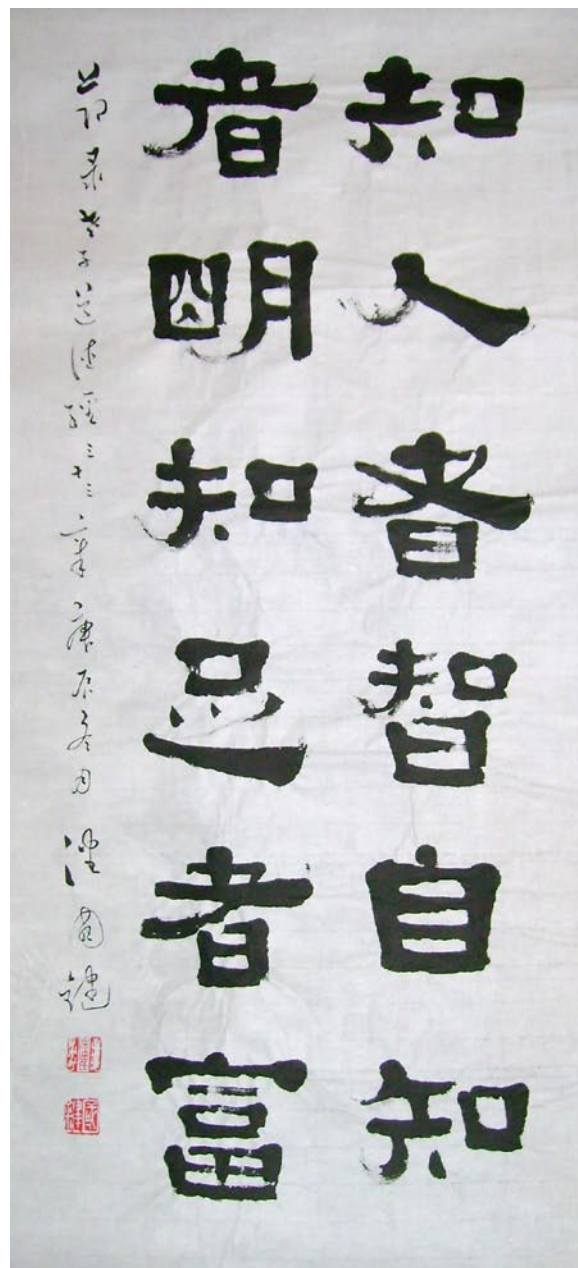 知人者智自知
者明知足者富
节录老子道德经三十三章庚辰冬月